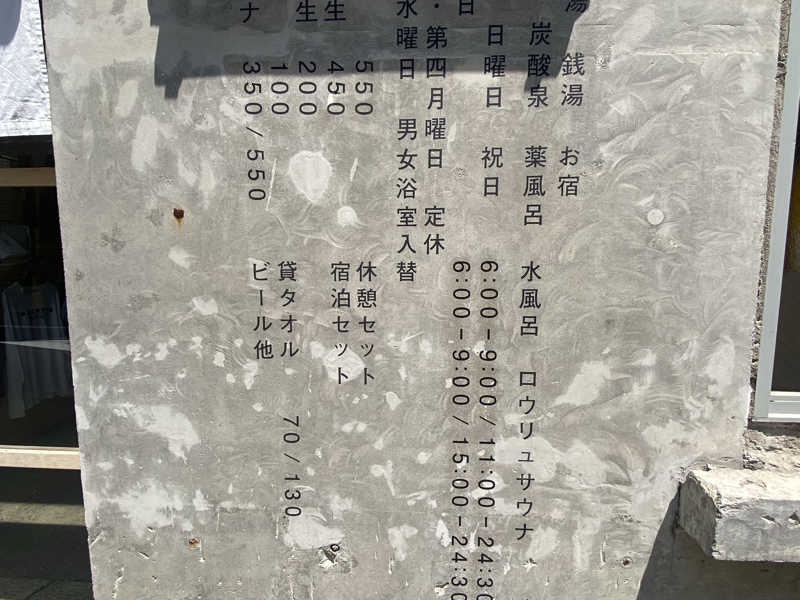 湯 銭湯 お宿
炭酸泉 薬風呂 水風呂 ロウリュサウナ
日曜日 祝日 6:00-9:00/11:00-24:30
日 6:00-9:00/15:00-24:30
・第四月曜日 定休
水曜日 男女浴室入替
550 休憩セット
生 450 宿泊セット
生 200
100 貸タオル 70/130
ナ 350/550 ビール他